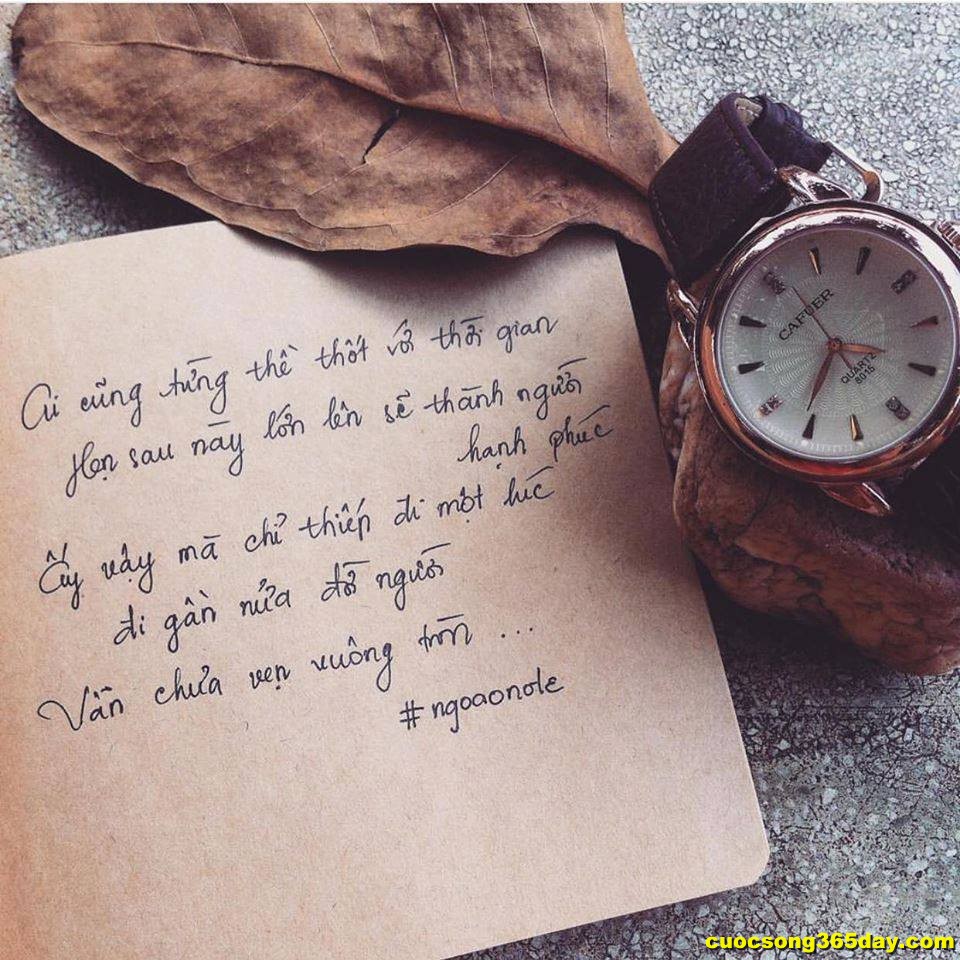 Ai cũng từng thề thốt với thời gian
Hẹn sau này lớn lên sẽ thành người
hạnh phúc
Ấy vậy mà chỉ thiếp đi một lúc
đi gần nửa đời người
Vẫn chưa vẹn vuông tròn ...
#ngoaonote
CAFUER
QUARTZ
8015
cuocsong365day.com